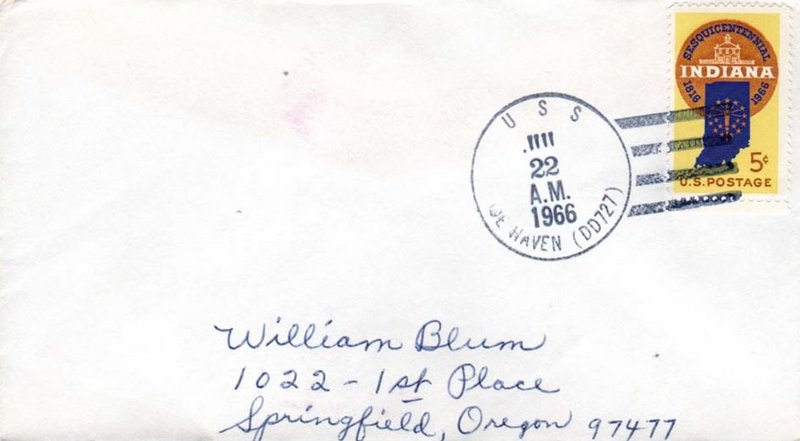 SESQUICENTENNIAL
INDIANA
1816 1966
5¢
U.S. POSTAGE
USS
22
A.M.
1966
DE HAVEN (DD727)
William Blum
1022 - 1st Place
Springfield, Oregon 97477